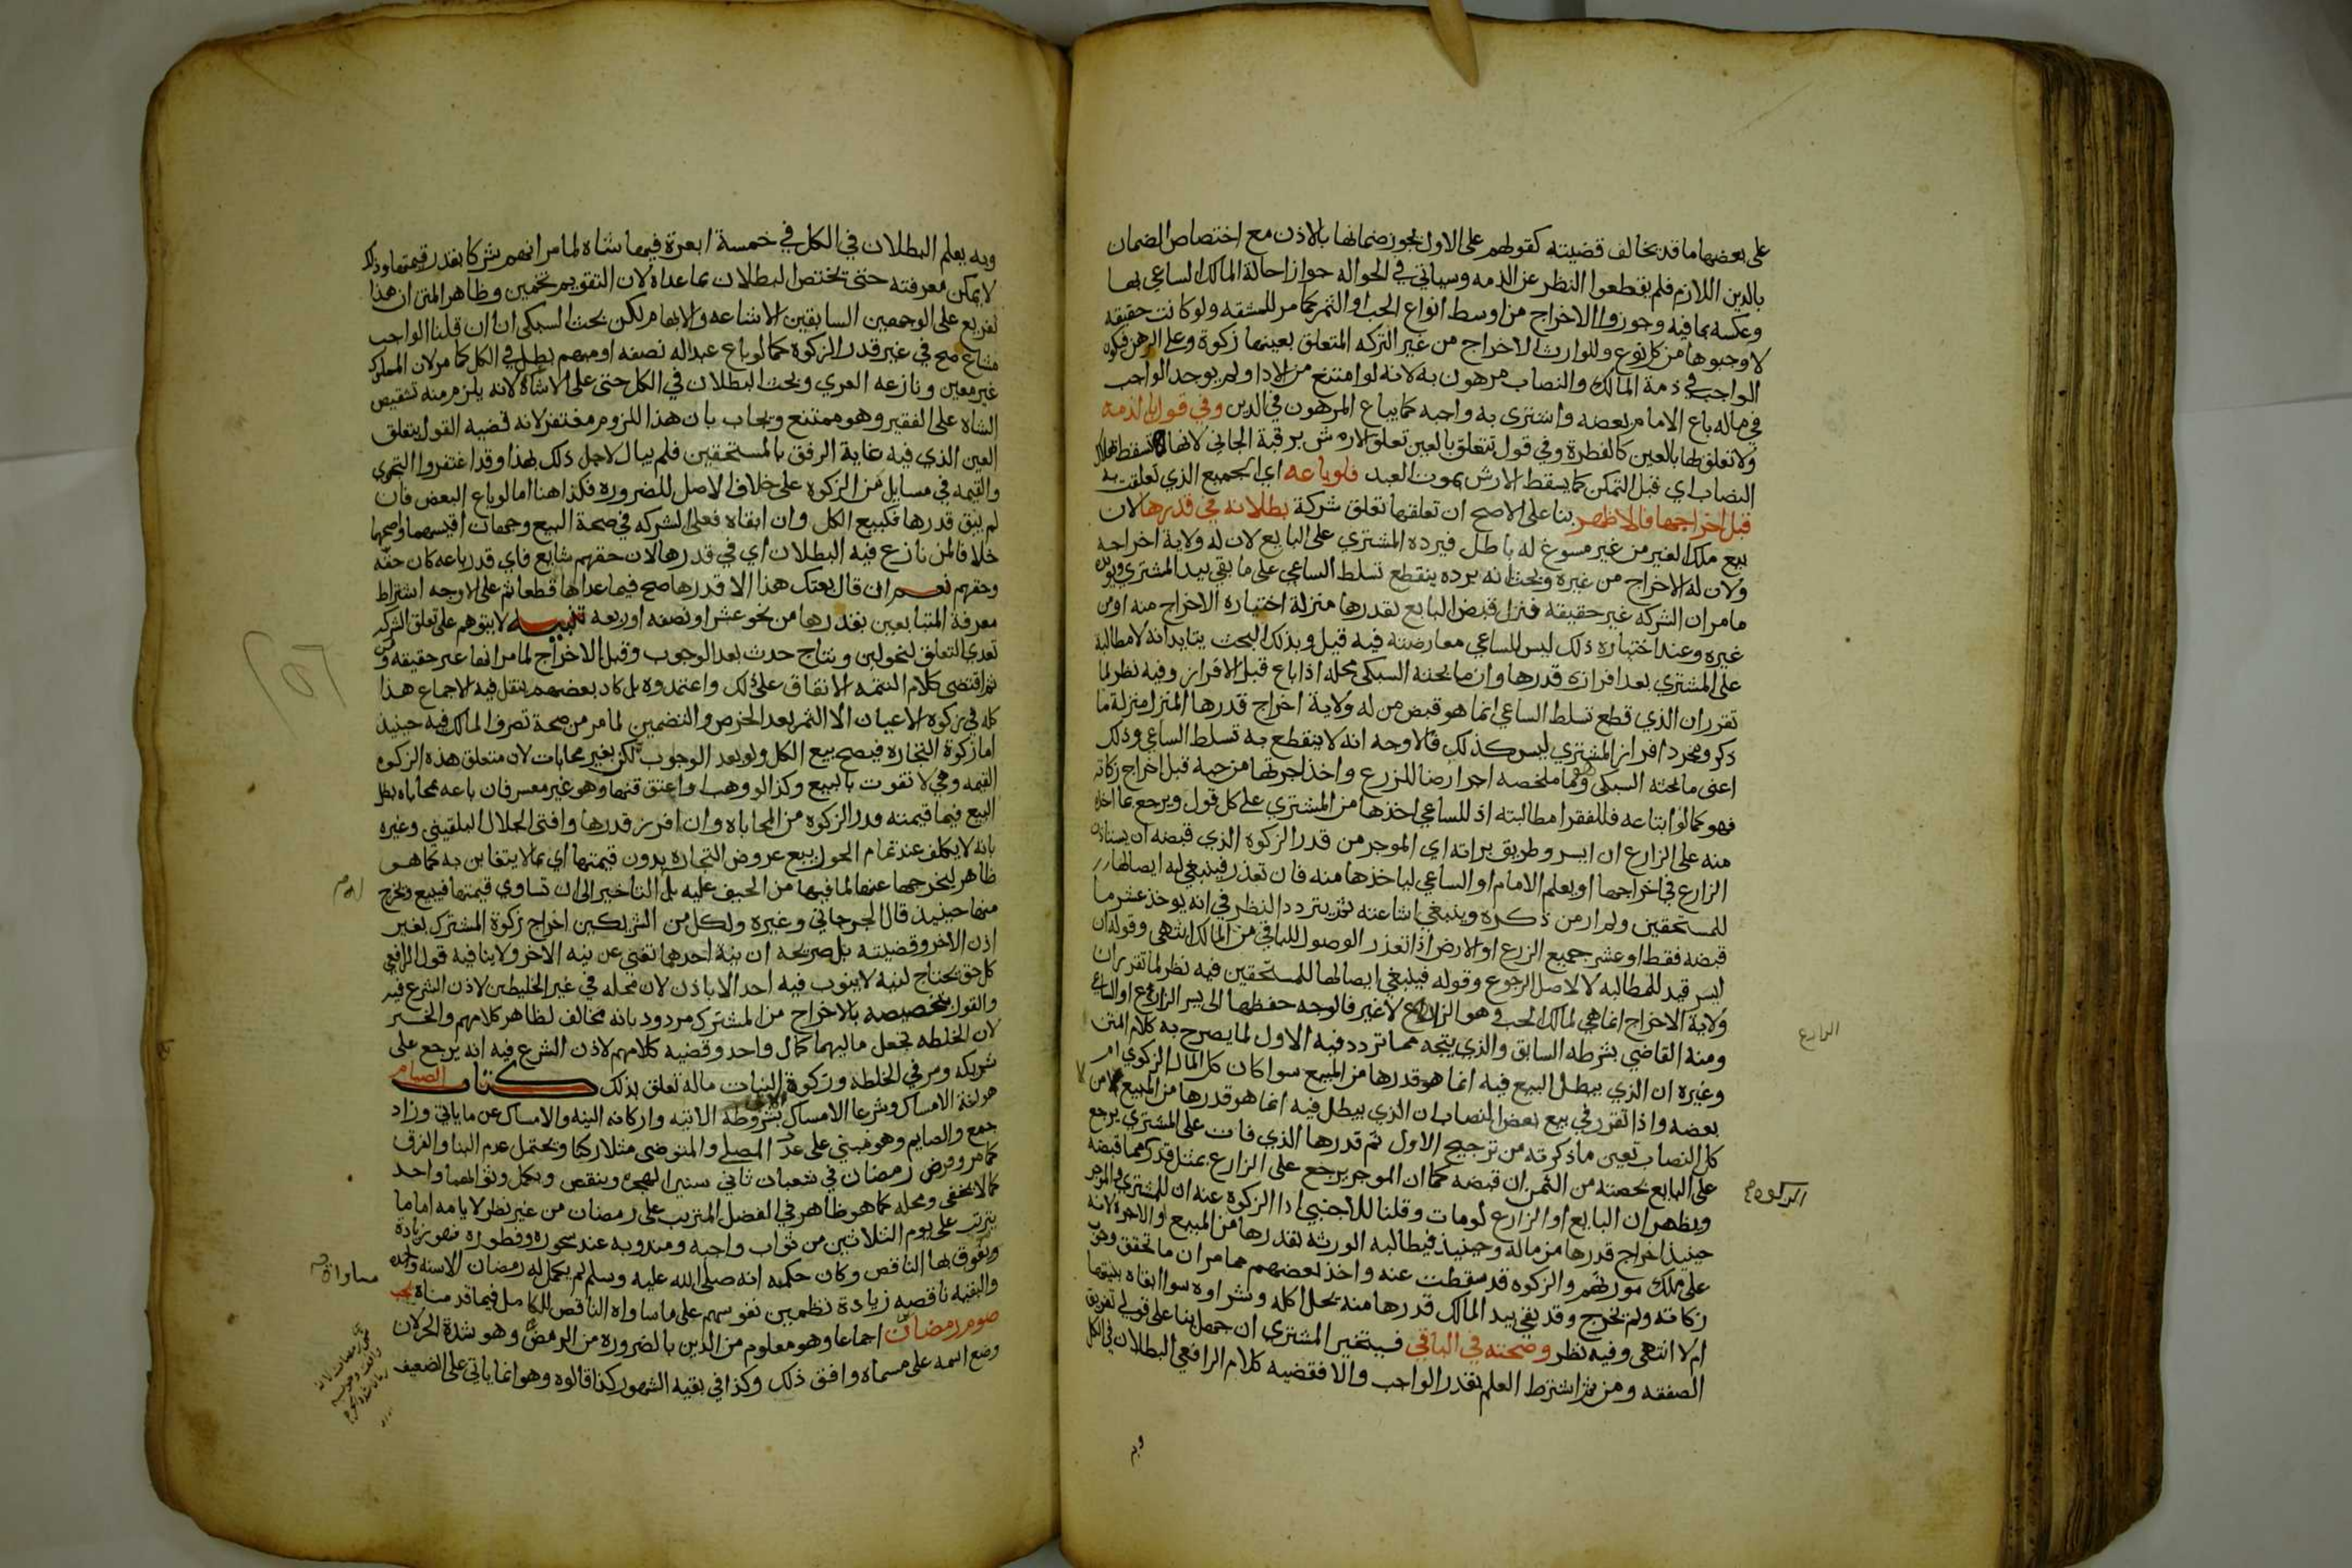 على بعضها ما قد يخالف قضيته كقولهم على الاول يجوز ضمانها بالاذن مع اختصاص الضمان
بالدين اللازم فلم يقطعوا النظر عن الذمه وسياتي في الحواله جواز احالة المالك الساعي بها
وعكسه بما فيه وجوزوا الاخراج من اوسط انواع الحب او الثمر كما مر للمشقه ولو كانت حقيقه
لاوجبوها من كل نوع وللوارث الاخراج من غير التركه المتعلق بعينها زكوة وعلى الرهن فيكون
الواجب في ذمة المالك والنصاب مرهون به لانه لو امتنع من الادا ولم يوجد الواجب
في ماله باع الامام بعضه واشترى به واجبه كما يباع المرهون في الدين وفي قول بالذمه
ولا تعلق لها بالعين كالفطرة وفي قول تتعلق بالعين تعلق الارش برقبة الجاني لانها تسقط بهلاك
النصاب اي قبل التمكن كما يسقط الارش بموت العبد فلو باعه اي الجميع الذي تعلقت به
قبل اخراجها فالاظهر بنا على الاصح ان تعلقها تعلق شركة بطلانه في قدرها لان
بيع ملك الغير من غير مسوغ له باطل فيرده المشتري على البايع لان له ولاية اخراجه
ولان له الاخراج من غيره وبحث انه برده ينقطع تسلط الساعي على ما بقي بيد المشتري ويؤيده
ما مر ان الشركه غير حقيقه فنزل قبض البايع لقدرها منزلة اختياره الاخراج منه او من
غيره وعند اختياره ذلك ليس للساعي معارضته فيه قيل وبذلك البحث يتايد انه لا مطالبة
على المشتري بعد افرازه قدرها وان ما بحثه السبكي محله اذا باع قبل الافراز وفيه نظر لما
تقرر ان الذي قطع تسلط الساعي انما هو قبض من له ولاية اخراج قدرها المنزل منزلة ما
ذكر ومجرد افراز المشتري ليس كذلك فالاوجه انه لا ينقطع به تسلط الساعي وذلك
اعنى ما بحثه السبكي وهو ما ملخصه اجر ارضا للزرع واخذ اجرتها من حبه قبل اخراج زكاته
فهو كما لو ابتاعه فللفقرا مطالبته اذ للساعي اخذها من المشتري على كل قول ويرجع بما اخذه
منه على الزارع ان ايسر وطريق براته اي الموجر من قدر الزكوة الذي قبضه ان يستاذن
الزارع في اخراجها او يعلم الامام او الساعي لياخذها منه فان تعذر فينبغي له ايصالها
للمستحقين ولم ار من ذكره وينبغي اشاعته ثم يتردد النظر في انه يوخذ عشر ما
قبضه فقط او عشر جميع الزرع او الارض اذا تعذر الوصول للباقي من المالك انتهى وقوله ان
ايسر قيد للمطالبه لا لاصل الرجوع وقوله فينبغي ايصالها للمستحقين فيه نظر لما تقرر ان
ولاية الاخراج انما هي لمالك الحب وهو الزارع لا غير فالوجه حفظها الى يسر الزارع او الساعي
ومنه القاضي بشرطه السابق والذي يتجه مما تردد فيه الاول لما يصرح به كلام المتن
وغيره ان الذي يبطل البيع فيه انما هو قدرها من المبيع سوا كان كل المال الزكوي ام
بعضه واذا تقرر في بيع بعض النصاب ان الذي يبطل فيه انما هو قدرها من المبيع لا من
كل النصاب تعين ما ذكرته من ترجيح الاول ثم قدرها الذي فات على المشتري يرجع
على البايع بحصته من الثمن ان قبضه كما ان الموجر يرجع على الزارع بمثل قدرها مما قبضه
ويظهر ان البايع او الزارع لو مات وقلنا للاجنبي ادا الزكوة عنه ان للمشتري والموجر
حينيذ اخراج قدرها من ماله وحينيذ فيطالبه الورثه بقدرها من المبيع او الاجرة لانه
على ملك مورثهم والزكوه قد سقطت عنه واخذ بعضهم مما مر ان ما تحقق وجوب
زكاته ولم تخرج وقد بقي بيد المالك قدرها منه يحل اكله وشراوه سوا ابقاه بنيتها
ام لا انتهى وفيه نظر وصحته في الباقي فيتخير المشتري ان جهل بنا على قولي تفريق
الصفقه ومن ثم اشترط العلم بقدر الواجب والا فقضيه كلام الرافعي البطلان في الكل
وبه
الزارع
وبه يعلم البطلان في الكل في خمسة ابعرة فيها شاه لما مر انهم شركا بقدر قيمتها وذلك
لا يمكن معرفته حتى يختص البطلان بما عداه لان التقويم تخمين وظاهر المتن ان هذا
تفريع على الوجهين السابقين الاشاعه والابهام لكن بحث السبكي انا ان قلنا الواجب
مشاع صح في غير قدر الزكوة كما لو باع عبدا له نصفه او مبهم بطل في الكل كما مر لان المملوك
غير معين ونازعه الغزي وبحث البطلان في الكل حتى على الاشاعه لانه يلزم منه تشقيص
الشاه على الفقير وهو ممتنع ويجاب بان هذا اللزوم مغتفر لانه قضيه القول بتعلق
العين الذي فيه غاية الرفق بالمستحقين فلم يبال لاجل ذلك بهذا وقد اغتفروا التجزي
والقيمه في مسايل من الزكوة على خلاف الاصل للضروره فكذا هنا اما لو باع البعض فان
لم يبق قدرها فكبيع الكل وان ابقاه فعلى الشركه في صحة البيع وجهان اقيسهما واصحهما
خلافا لمن نازع فيه البطلان اي في قدرها لان حقهم شايع فاي قدر باعه كان حقه
وحقهم نعم ان قال بعتك هذا الا قدرها صح فيما عداها قطعا ثم على الاوجه اشتراط
معرفة المتبايعين بقدرها من نحو عشر او نصفه او ربعه تنبيه لا يتوهم على تعلق الشركه
تعدى التعلق لنحو لبن ونتاج حدث بعد الوجوب وقبل الاخراج لما مر انها غير حقيقه ومن
ثم اقتضى كلام التتمه الاتفاق على ذلك واعتمدوه بل كاد بعضهم ينقل فيه الاجماع هذا
كله في زكوة الاعيان الا الثمر بعد الخرص والتضمين لما مر من صحة تصرف المالك فيه حينيذ
اما زكوة التجاره فيصح بيع الكل ولو بعد الوجوب لكن بغير محابات لان متعلق هذه الزكوه
القيمه وهي لا تفوت بالبيع وكذا لو وهب او اعتق قنها وهو غير معسر فان باعه بمحاباه بطل
البيع فيما قيمته قدر الزكوه من المحاباه وان افرز قدرها وافتى الجلال البلقيني وغيره
بانه لا يكلف عند تمام الحول بيع عروض التجاره بدون قيمتها اي بما لا يتغابن به كما هو
ظاهر ليخرجها عنها لما فيها من الحيف عليه بل التاخير الى ان تساوي قيمتها فيبيع ويخرج
منها حينيذ قال الجرجاني وغيره ولكل من الشريكين اخراج زكوة المشترك بغير
اذن الاخر وقضيته بل صريحه ان نية احدهما تغني عن نيه الاخر ولا ينافيه قول الرافعي
كل حق يحتاج لنيه لا ينوب فيه احد الا باذن لان محله في غير الخليطين لاذن الشرع فيه
والقول بتخصيصه بالاخراج من المشترك مردود بانه مخالف لظاهر كلامهم والخبر
لان الخلطه تجعل ماليهما كمال واحد وقضيه كلامهم لاذن الشرع فيه انه يرجع على
شريكه ومر في الخلطه وزكوة النبات ماله تعلق بذلك كتاب الصيام
هو لغة الامساك وشرعا الامساك بشروطه الاتيه واركانه النيه والامساك عن ما ياتي وزاد
جمع والصايم وهو مبني على عد المصلي والمتوضي مثلا ركنا ويحتمل عدم البنا والفرق
كما مر وفرض رمضان في شعبان ثاني سني الهجره وينقص ويكمل وثوابهما واحد
كما لا يخفى ومحله كما هو ظاهر في الفضل المترتب على رمضان من غير نظر لايامه اما ما
يترتب على يوم الثلاثين من ثواب واجبه ومندوبه عند سحوره وفطوره فهو زيادة
ويفوق بها الناقص وكان حكمته انه صلى الله عليه وسلم لم يكمل له رمضان الا سنه واحده
والبقيه ناقصه زيادة تطمين نفوسهم على مساواه الناقص للكامل فيما قدمناه يجب
صوم رمضان اجماعا وهو معلوم من الدين بالضروره من الرمض وهو شدة الحر لان
وضع اسمه على مسماه وافق ذلك وكذا في بقيه الشهور كذا قالوه وهو انما ياتي على الضعيف
مساواة